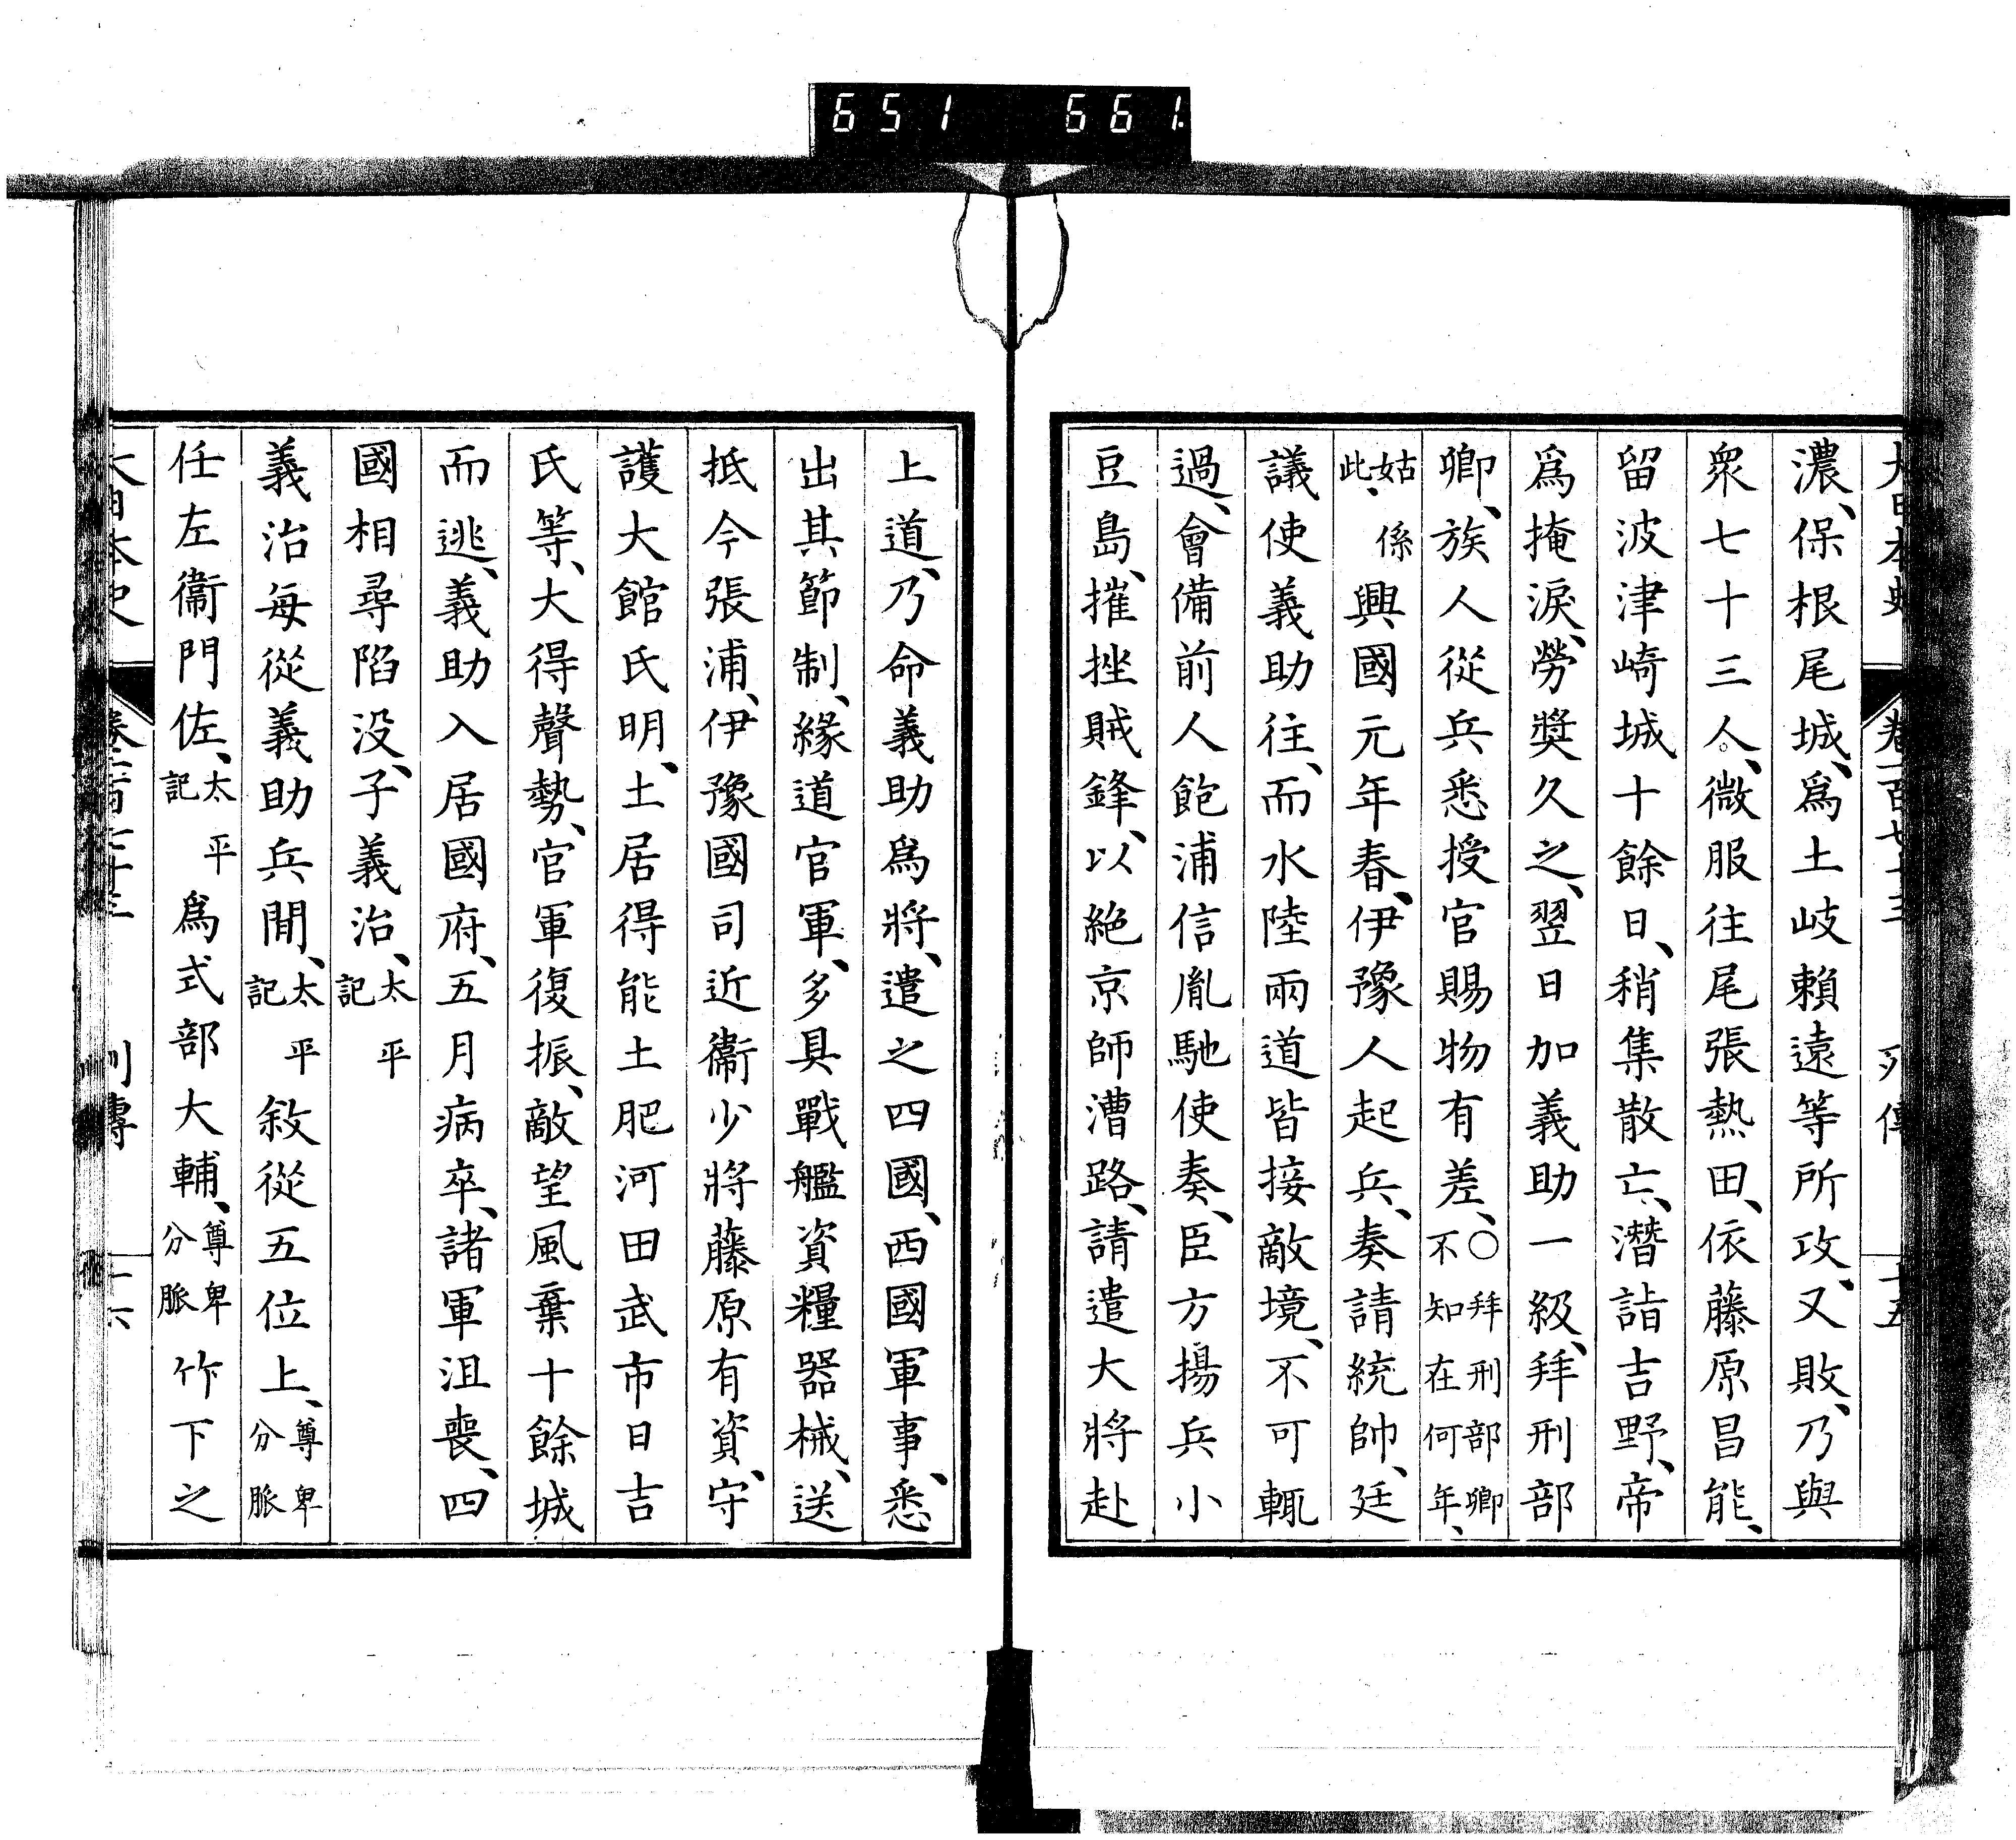 651 661
大日本史 卷一百七十三 列傳 十五
濃、保根尾城、爲土岐賴遠等所攻、又敗、乃與
衆七十三人、微服往尾張熱田、依藤原昌能、
留波津崎城十餘日、稍集散亡、潛詣吉野、帝
爲掩淚、勞獎久之、翌日加義助一級、拜刑部
卿、族人從兵悉授官賜物有差、〇拜刑部卿不知在何年、
姑係此、興國元年春、伊豫人起兵、奏請統帥、廷
議使義助往、而水陸兩道皆接敵境、不可輒
過、會備前人飽浦信胤馳使奏、臣方揚兵小
豆島、摧挫賊鋒、以絕京師漕路、請遣大將赴
上道、乃命義助爲將、遣之四國、西國軍事、悉
出其節制、緣道官軍、多具戰艦資糧器械、送
抵今張浦、伊豫國司近衞少將藤原有資、守
護大館氏明、土居得能土肥河田武市日吉
氏等、大得聲勢、官軍復振、敵望風棄十餘城
而逃、義助入居國府、五月病卒、諸軍沮喪、四
國相尋陷没、子義治、太平記
義治每從義助兵間、太平記敘從五位上、尊卑分脈
任左衞門佐、太平記爲式部大輔、尊卑分脈竹下之
大日本史 卷一百七十三 列傳 十六